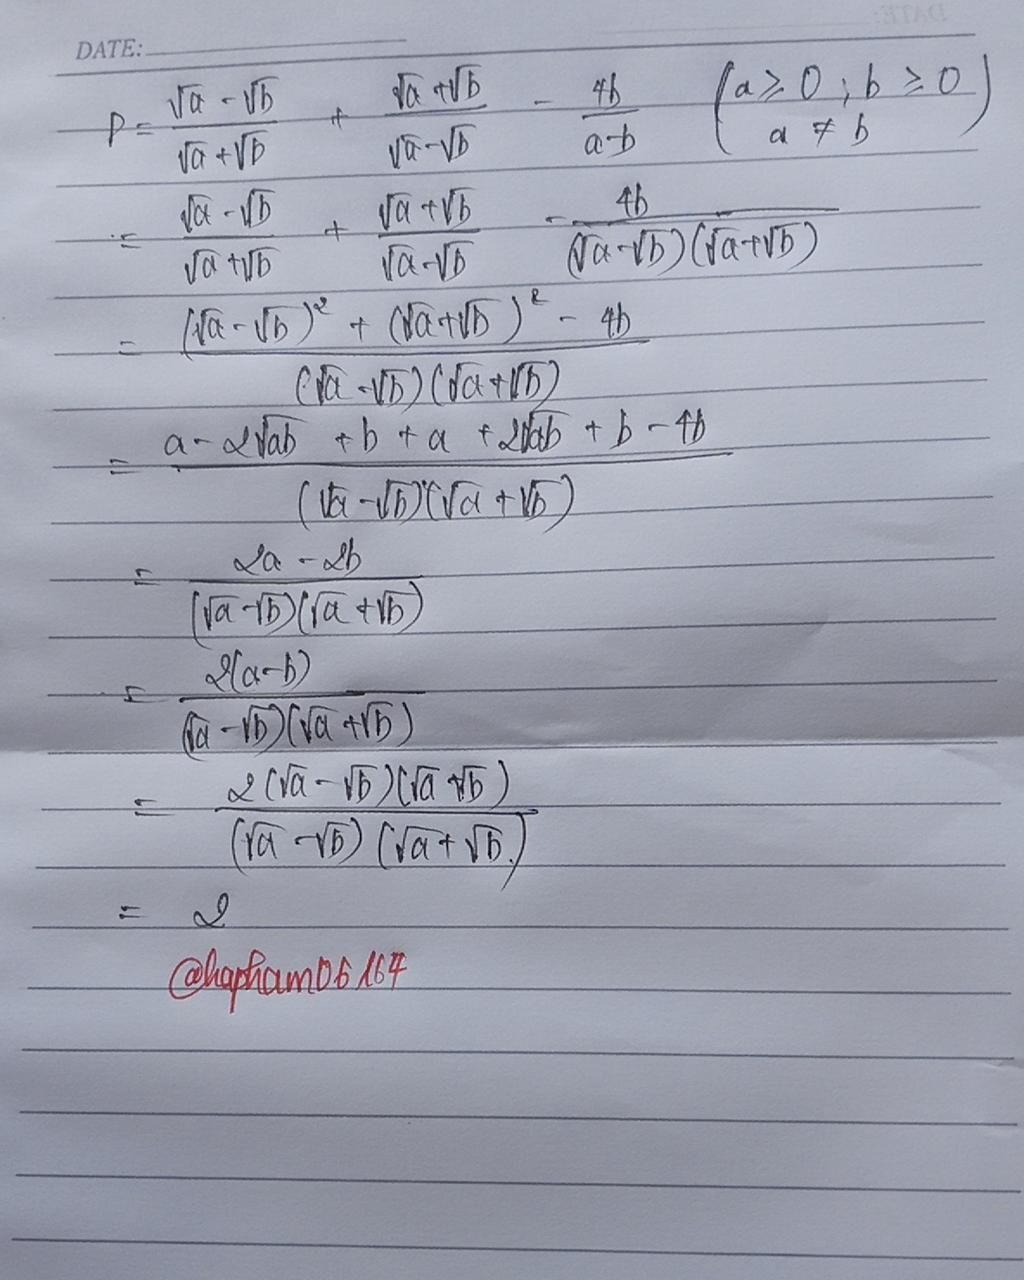 DATE:
P = (√a - √b)/(√a + √b) + (√a + √b)/(√a - √b) - 4b/(a-b) (a ≥ 0 ; b ≥ 0
a ≠ b)
= (√a - √b)/(√a + √b) + (√a + √b)/(√a - √b) - 4b/((√a - √b)(√a + √b))
= ((√a - √b)² + (√a + √b)² - 4b)/((√a - √b)(√a + √b))
= (a - 2√ab + b + a + 2√ab + b - 4b)/((√a - √b)(√a + √b))
= (2a - 2b)/((√a - √b)(√a + √b))
= 2(a-b)/((√a - √b)(√a + √b))
= 2(√a - √b)(√a + √b)/((√a - √b)(√a + √b))
= 2
@hapham06167